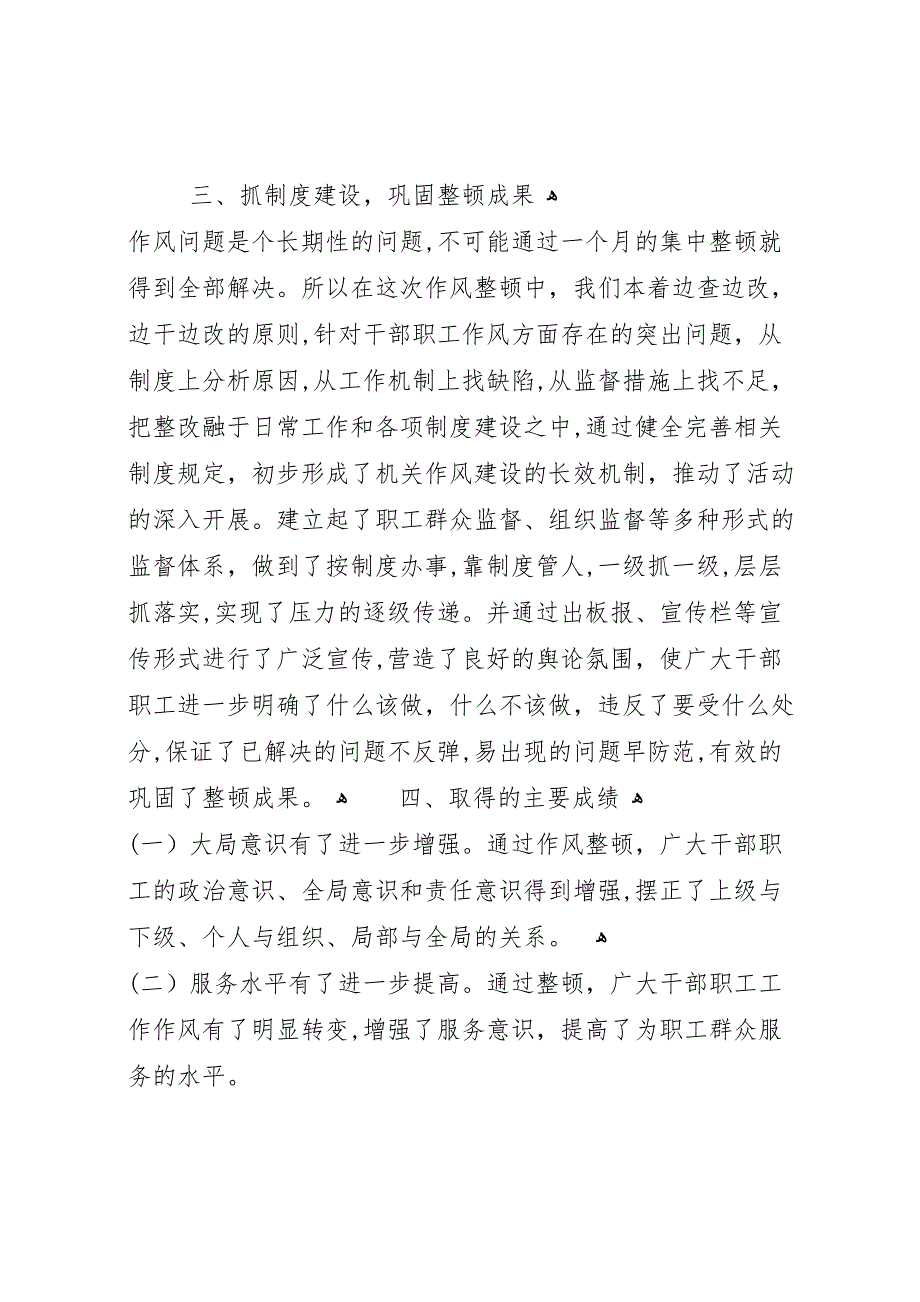 三、抓制度建设，巩固整顿成果 ﻫ
作风问题是个长期性的问题,不可能通过一个月的集中整顿就
得到全部解决。所以在这次作风整顿中，我们本着边查边改，
边干边改的原则,针对干部职工作风方面存在的突出问题，从
制度上分析原因,从工作机制上找缺陷,从监督措施上找不足，
把整改融于日常工作和各项制度建设之中,通过健全完善相关
制度规定，初步形成了机关作风建设的长效机制，推动了活动
的深入开展。建立起了职工群众监督、组织监督等多种形式的
监督体系，做到了按制度办事,靠制度管人,一级抓一级,层层
抓落实,实现了压力的逐级传递。并通过出板报、宣传栏等宣
传形式进行了广泛宣传,营造了良好的舆论氛围，使广大干部
职工进一步明确了什么该做，什么不该做，违反了要受什么处
分,保证了已解决的问题不反弹,易出现的问题早防范,有效的
巩固了整顿成果。 ﻫ 四、取得的主要成绩 ﻫ
(一）大局意识有了进一步增强。通过作风整顿，广大干部职
工的政治意识、全局意识和责任意识得到增强,摆正了上级与
下级、个人与组织、局部与全局的关系。 ﻫ
(二）服务水平有了进一步提高。通过整顿，广大干部职工工
作作风有了明显转变,增强了服务意识，提高了为职工群众服
务的水平。